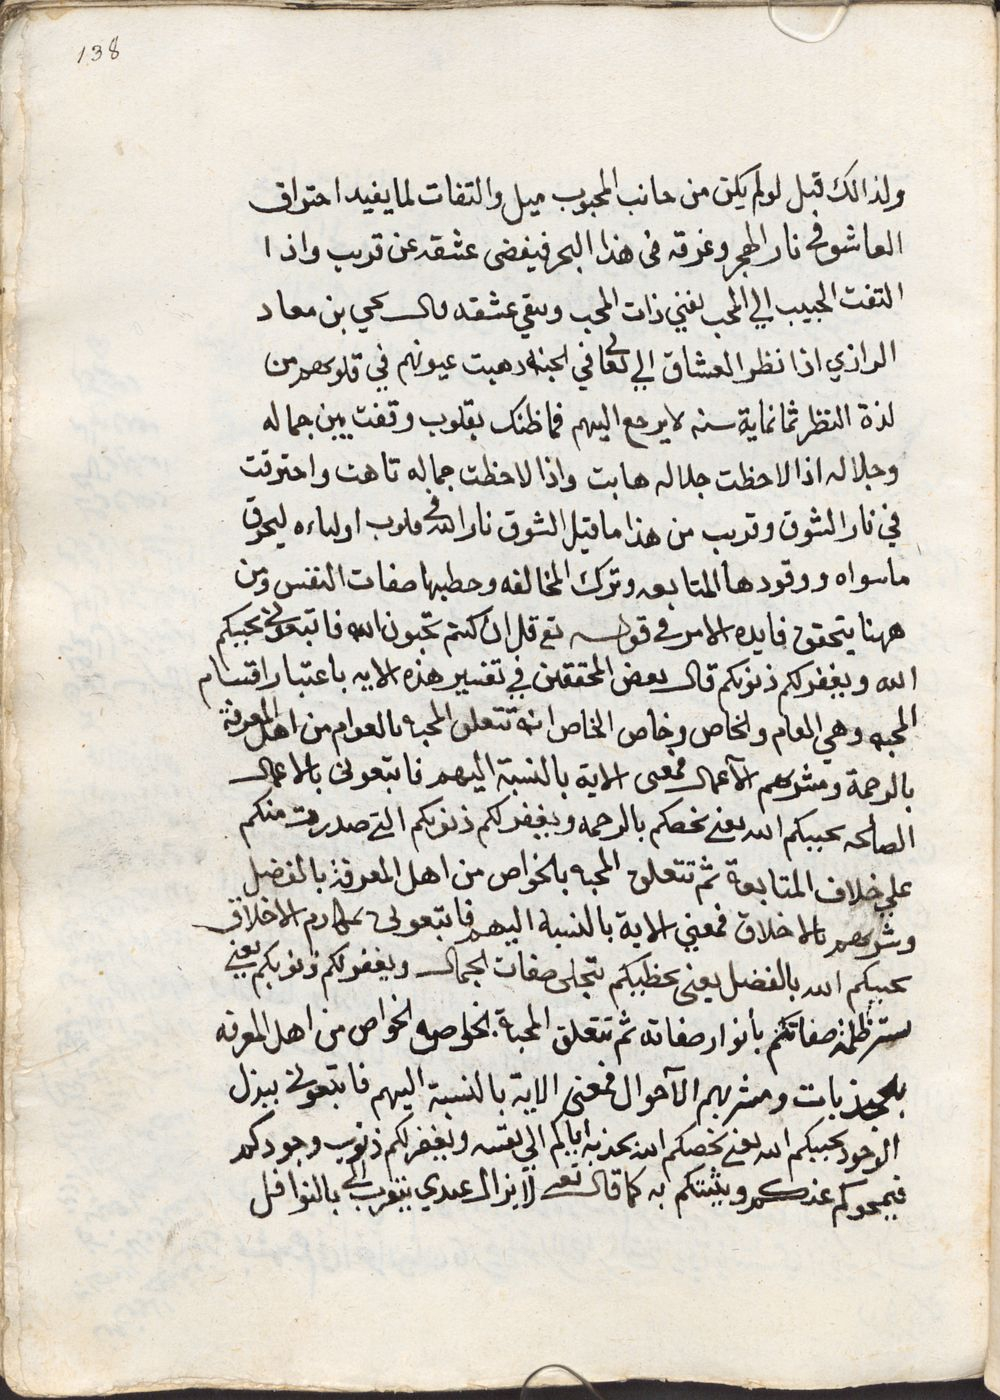 138
ولذالك قيل لو لم يكن من جانب المحبوب ميل والتفات لما يفيد احتراق
العاشق في نار الهجر وغرقه في هذا البحر فيفضى عشقه عن قريب واذا
التفت الحبيب الي المحب يفني ذات المحب ويبقي عشقه قال يحيي بن معاد
الرازي اذا نظر العشاق الي الله تعا في الجنه دهبت عيونهم في قلوبهم من
لذة النظر ثمانماية سنه لا يرجع اليهم فما ظنك بقلوب وقفت بين جماله
وجلاله اذا لاحظت جلاله هابت واذا لاحظت جماله تاهت واحترقت
في نار الشوق وقريب من هذا ما قيل الشوق نار الله في قلوب اولياءه ليحرق
ماسواه ووقودها المتابعه وترك المخالفه وحطبها صفات النفس ومن
ههنا يتحقق فايده الامر في قوله تع قل ان كنتم تحبون الله فاتبعوني يحببكم
الله ويغفر لكم ذنوبكم قال بعض المحققين في تفسير هذه الايه باعتبار اقتسام
المحبه وهي العام والخاص وخاص الخاص انه تتعلق المحبه بالعوام من اهل المعرفة
بالرحمة ومشربهم الآعمال فمعنى الاية بالنسبة اليهم فاتبعونى بالاعمال
الصالحه يحببكم الله يعني يخصكم بالرحمه ويغفر لكم ذنوبكم التي صدرت منكم
علي خلاف المتابعة ثم تتعلق المحبه بالخواص من اهل المعرفة بالفضل
وشربهم بالاخلاق فمعني الاية بالنسبة اليهم فاتبعونى بمكارم الاخلاق
يحببكم الله بالفضل يعنى يحظيكم بتجلى صفات الجمال ويغفر لكم ذنوبكم يعني
ستر ظلمة صفاتكم بأنوار صفاته ثم تتعلق المحبة بخواص الخواص من اهل المعرفه
بالجذبات ومشربهم الآحوال فمعنى الاية بالنسبة اليهم فاتبعوني ببذل
الوجود يحببكم الله يعني يخصكم الله بجذبه اياكم الي نفسه ويغفر لكم ذنوب وجودكم
فيمحوكم عنكم ويثبتكم به كما قال تعى لا يزال عبدي يتقرب الي بالنوافل